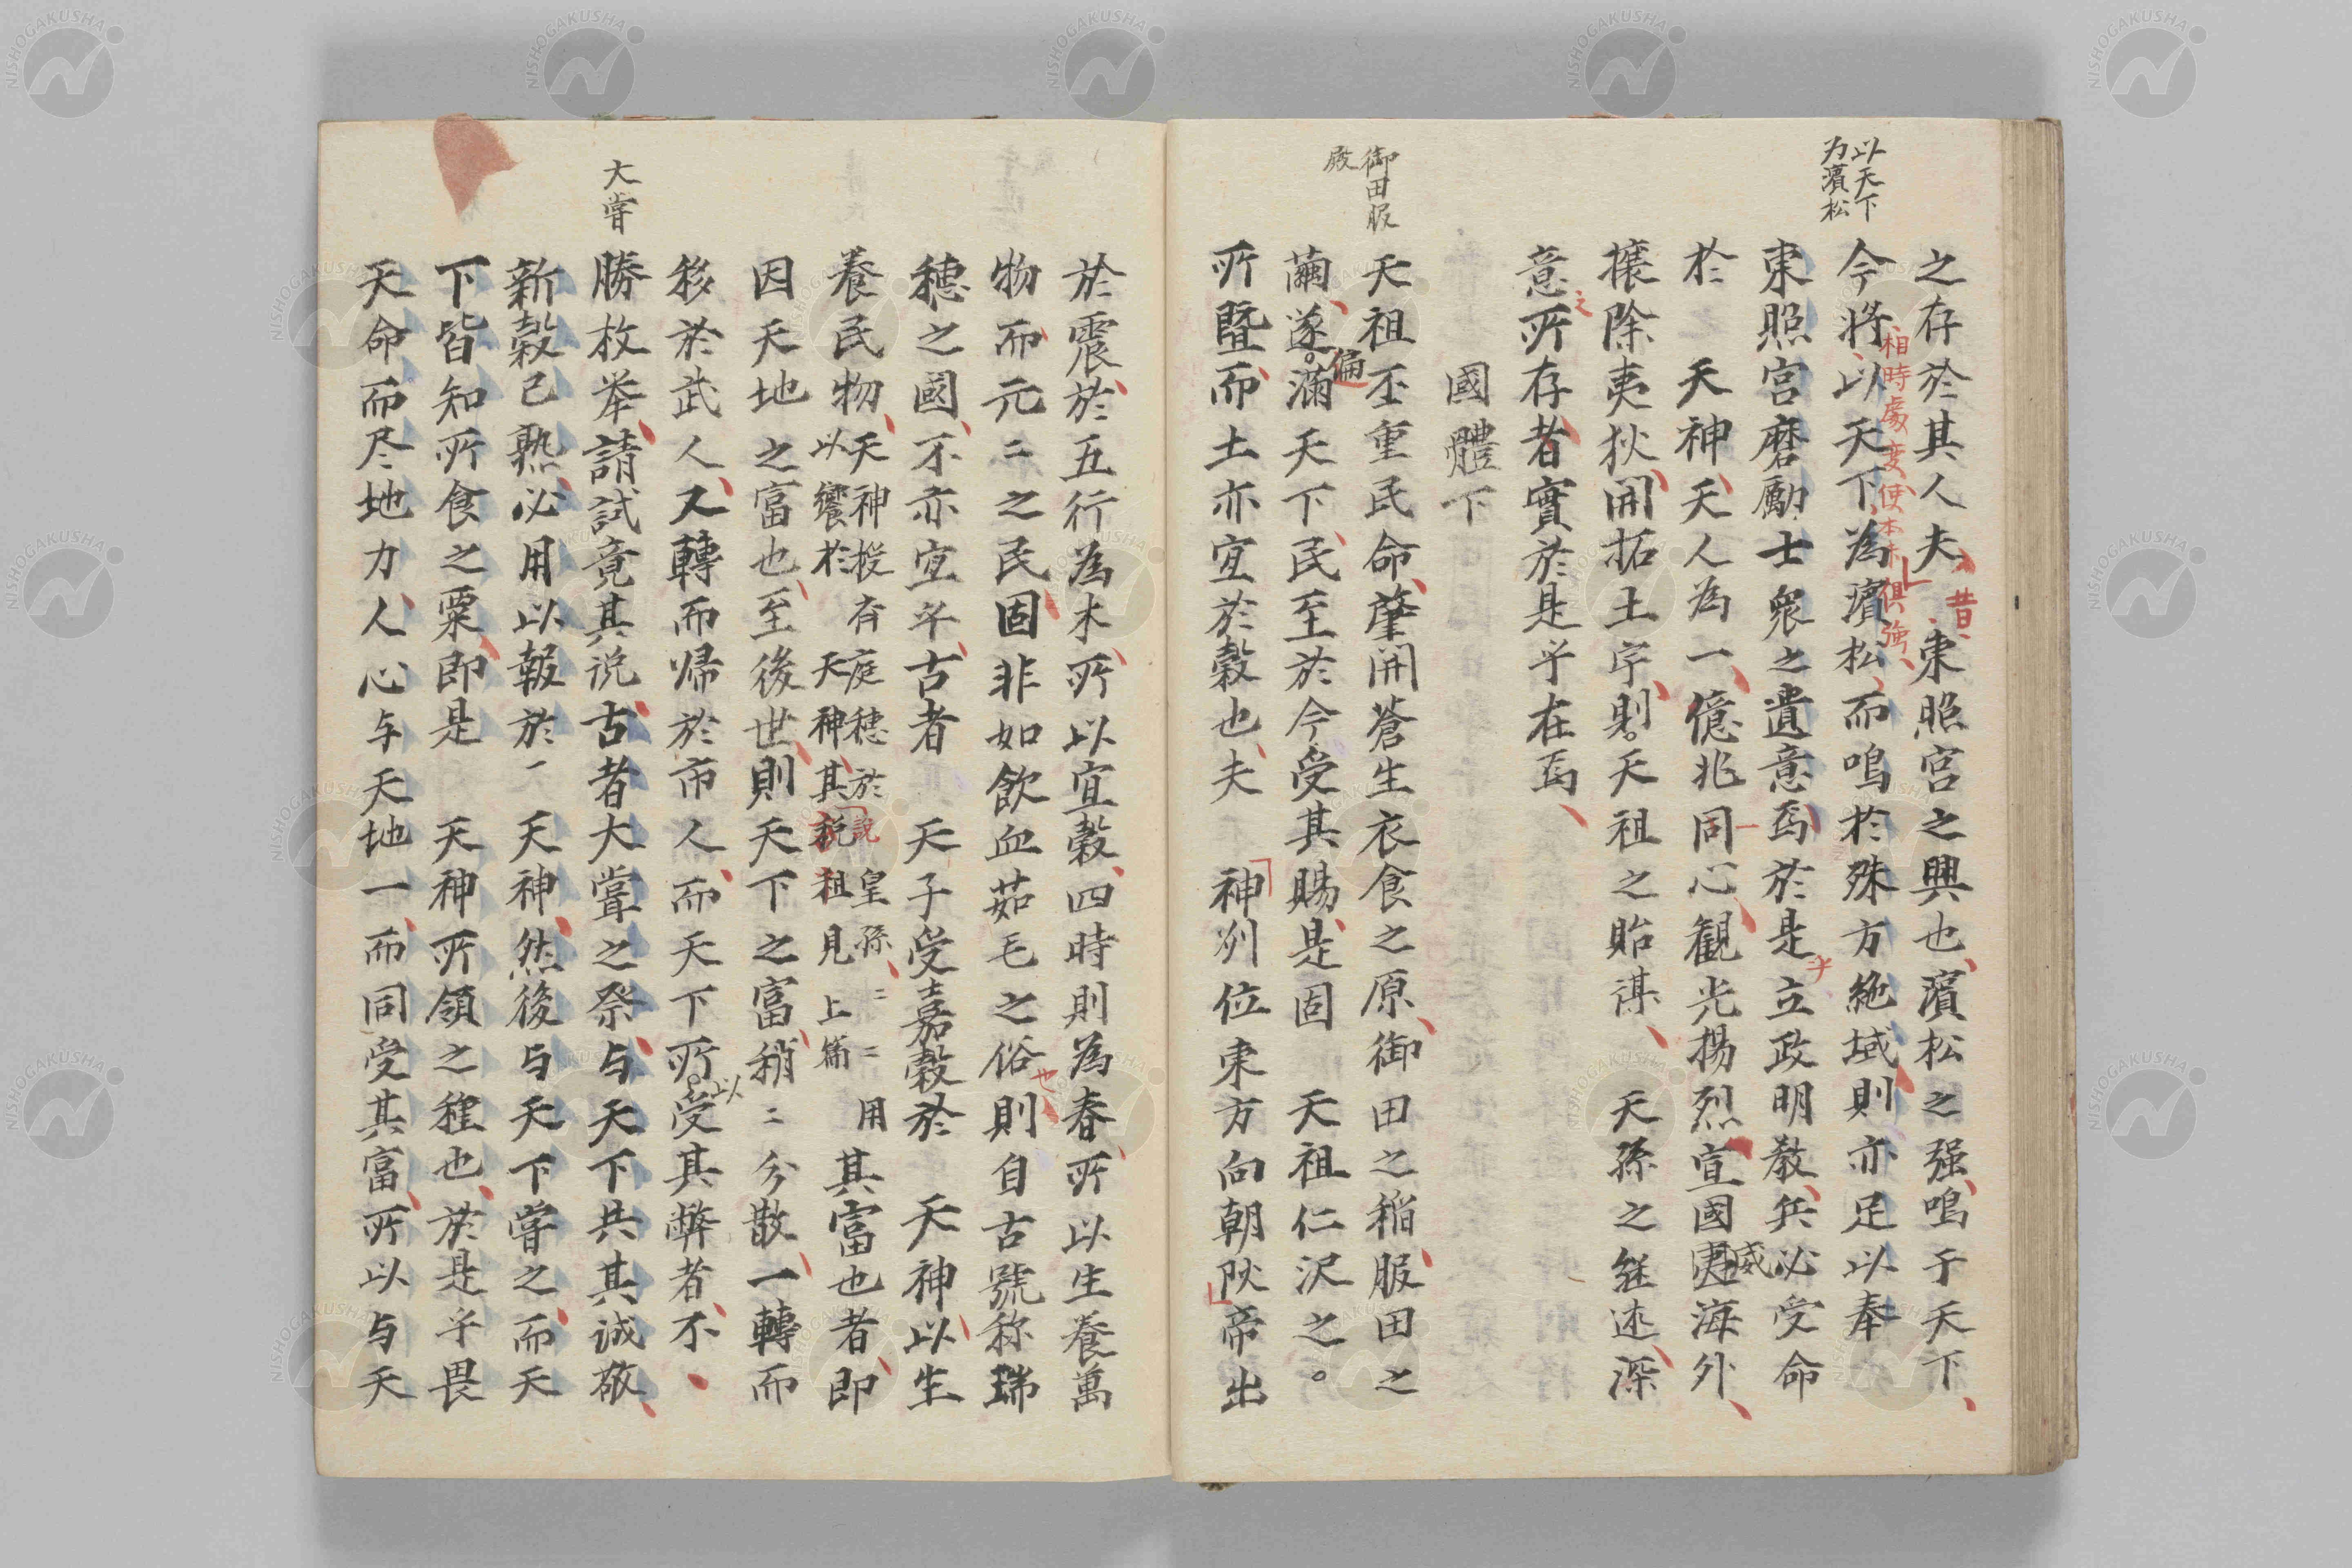 以天下
为濱松
之存於其人夫昔東照宮之興也濱松之强鳴于天下
相時處変使本末俱強
今將以天下為濱松而鳴於殊方絶域則亦足以奉
東照宮磨勵士衆之遺意焉於是乎立政明教兵必受命
於天神天人為一億兆同心観光揚烈宣國威海外
攘除夷狄開拓土宇則天祖之貽謀天孫之継述深
意之所存者實於是乎在焉
國體下
御田服
殿
天祖丕重民命肇開蒼生衣食之原御田之稲服田之
繭遂偏滿天下民至於今受其賜是固天祖仁沢之
所曁而土亦宜於穀也夫神州位東方向朝陽帝出
於震於五行為木所以宜穀四時則為春所以生養萬
物而元ニ之民固非如飲血茹毛之俗也則自古號称瑞
穗之國不亦宜乎古者天子受嘉穀於天神以生
養民物天神授斎庭穂於皇孫ニニ用
以饗於天神其説祖見上篇
其富也者即
因天地之富也至後世則天下之富稍ニ分散一轉而
移於武人又轉而帰於市人而天下所以受其弊者不
大嘗
勝枚举請試竟其说古者大嘗之祭与天下共其誠敬
新穀已熟必用以報於天神然後与天下嘗之而天
下皆知所食之粟即是天神所領之種也於是乎畏
天命而尽地力人心与天地一而同受其富所以与天
NISHOGAKUSHA